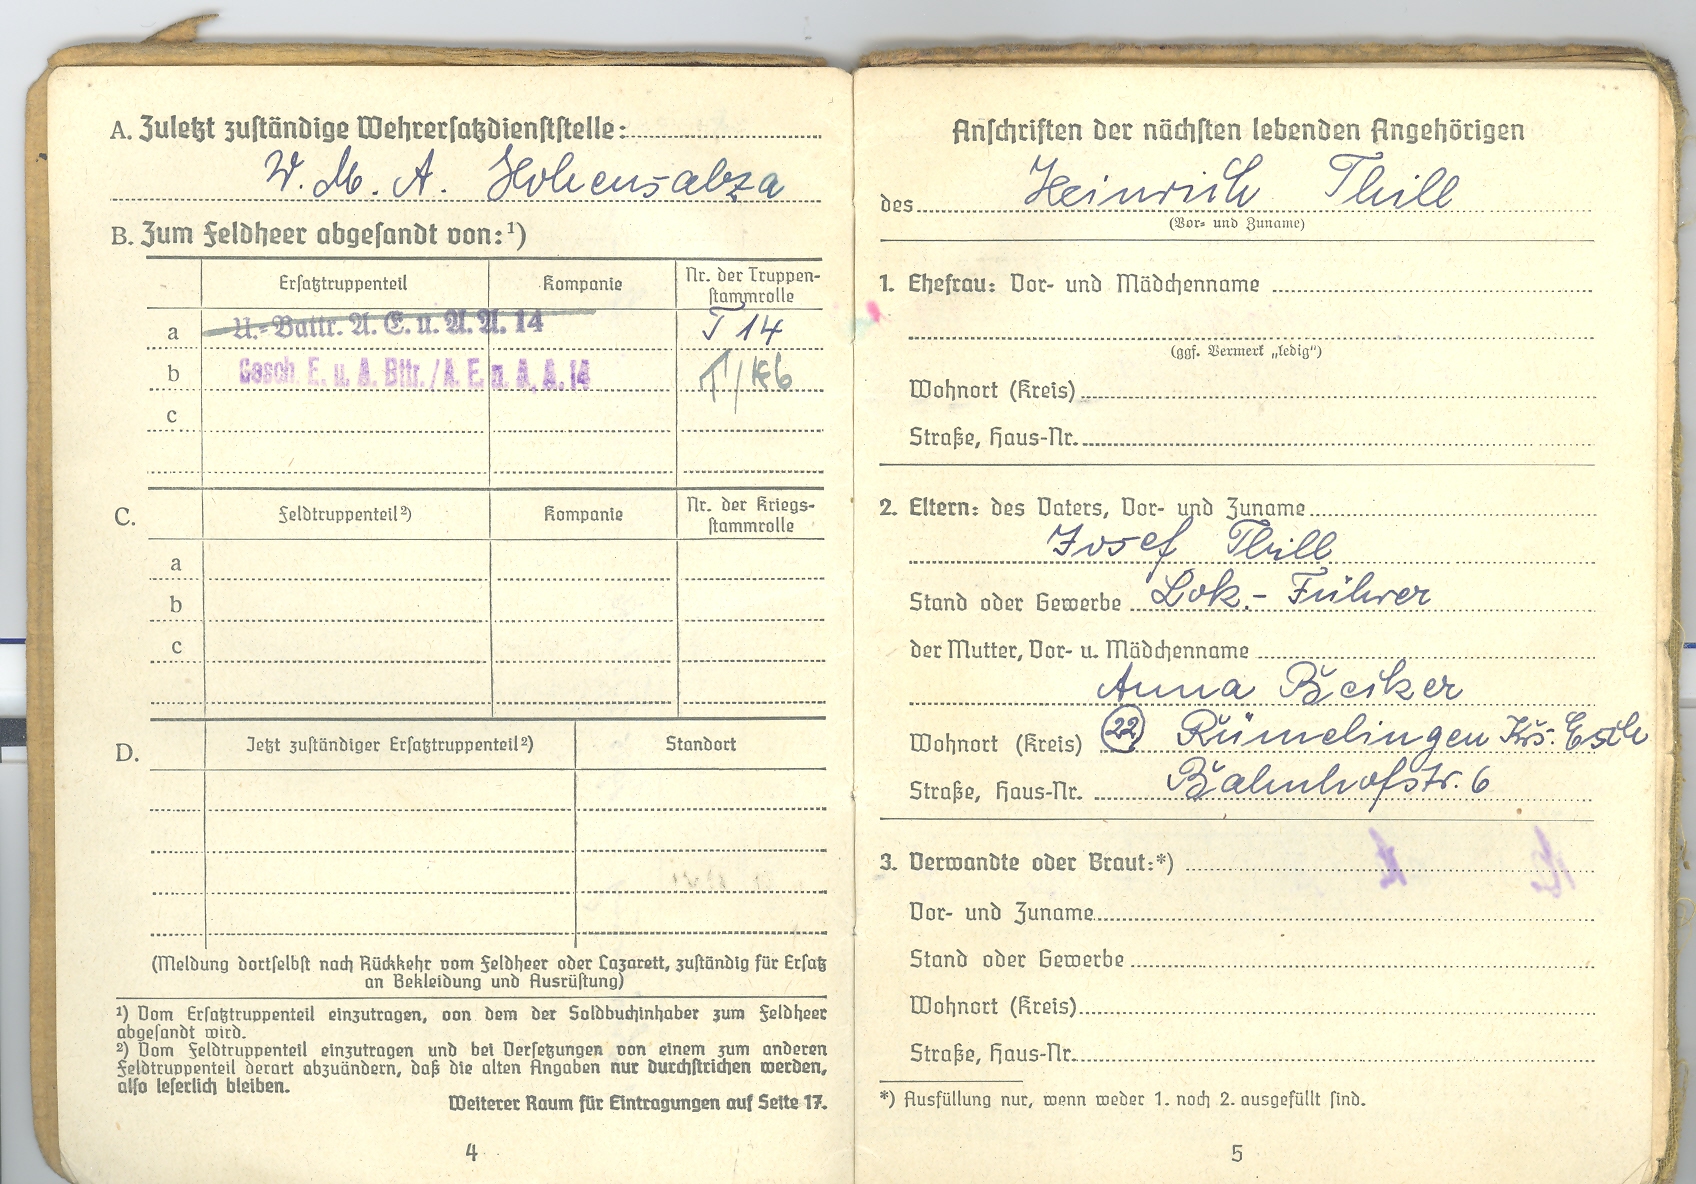 A. Zuletzt zuständige Wehrersatzdienststelle:
W. M. A. Hohensalza
B. Zum Feldheer abgesandt von:¹)
Ersatztruppenteil Kompanie Nr. der Truppen-
stammrolle
a U.-Battr. A. E. u. A. A. 14 T 14
b Gesch. E. u. A. Bttr./A. E. u. A. A. 14
c
C. Feldtruppenteil²) Kompanie Nr. der Kriegs-
stammrolle
a
b
c
D. Jetzt zuständiger Ersatztruppenteil²) Standort
(Meldung dortselbst nach Rückkehr vom Feldheer oder Lazarett, zuständig für Ersatz
an Bekleidung und Ausrüstung)
¹) Vom Ersatztruppenteil einzutragen, von dem der Soldbuchinhaber zum Feldheer
abgesandt wird.
²) Vom Feldtruppenteil einzutragen und bei Versetzungen von einem zum anderen
Feldtruppenteil derart abzuändern, daß die alten Angaben nur durchstrichen werden,
also leserlich bleiben.
Weiterer Raum für Eintragungen auf Seite 17.
4
Anschriften der nächsten lebenden Angehörigen
des Heinrich Thill
(Vor- und Zuname)
1. Ehefrau: Vor- und Mädchenname
(ggf. Vermerk „ledig“)
Wohnort (Kreis)
Straße, Haus-Nr.
2. Eltern: des Vaters, Vor- und Zuname
Josef Thill
Stand oder Gewerbe Lok.-Führer
der Mutter, Vor- u. Mädchenname
Anna Becker
Wohnort (Kreis) (22) Rümelingen Krs. Esch
Straße, Haus-Nr. Bahnhofstr. 6
3. Verwandte oder Braut:*)
Vor- und Zuname
Stand oder Gewerbe
Wohnort (Kreis)
Straße, Haus-Nr.
*) Ausfüllung nur, wenn weder 1. noch 2. ausgefüllt sind.
5